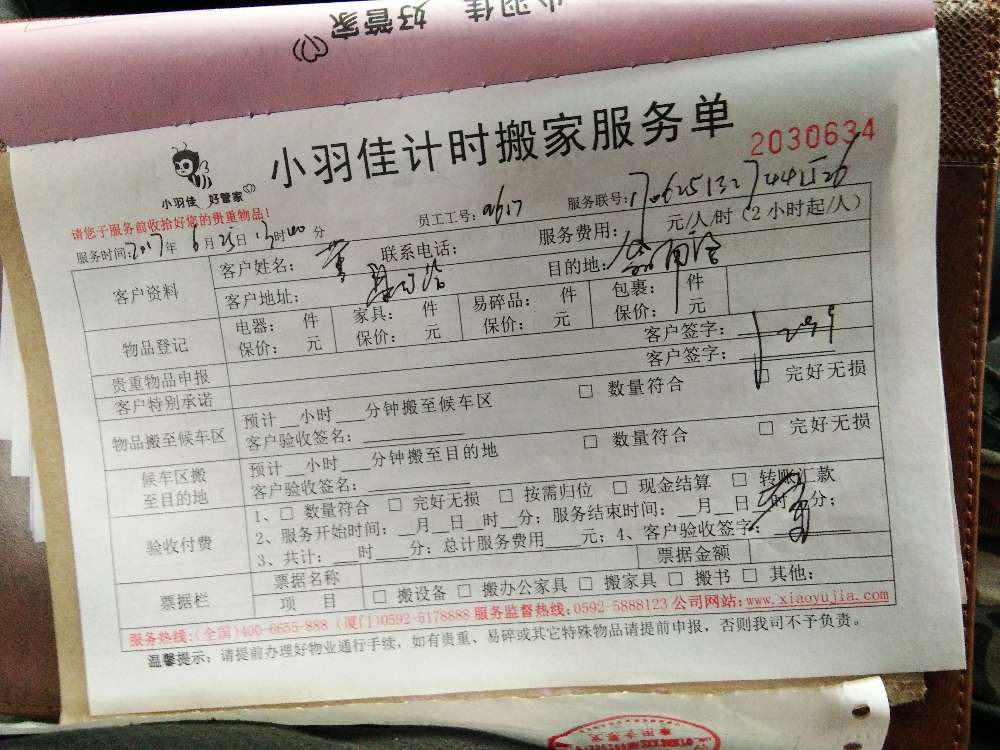 小羽佳 好管家
小羽佳 好管家
小羽佳计时搬家服务单
2030634
请您于服务前收拾好您的贵重物品！
员工工号：
服务联号：
服务时间：2017年6月25日13时00分
客户资料
客户姓名： 联系电话： 服务费用： 元/人/时（2小时起/人）
客户地址： 目的地：
物品登记
电器： 件 家具： 件 易碎品： 件 包裹： 件
保价： 元 保价： 元 保价： 元 保价： 元
贵重物品申报 客户签字：
客户特别承诺 客户签字：
物品搬至候车区
预计__小时___分钟搬至候车区 □ 数量符合 □ 完好无损
客户验收签名：
候车区搬至目的地
预计__小时___分钟搬至目的地 □ 数量符合 □ 完好无损
客户验收签名：
验收付费
1、□ 数量符合 □ 完好无损 □ 按需归位 □ 现金结算 □ 转账汇款
2、服务开始时间：__月__日__时__分；服务结束时间：__月__日__时__分；
3、共计：___时___分；总计服务费用____元；4、客户验收签字：
票据栏
票据名称 票据金额
项 目 □ 搬设备 □ 搬办公家具 □ 搬家具 □ 搬书 □ 其他：
服务热线：(全国)400-6655-888 (厦门)0592-5178888 服务监督热线：0592-5888123 公司网站：www.xiaoyujia.com
温馨提示：请提前办理好物业通行手续，如有贵重、易碎或其它特殊物品请提前申报，否则我司不予负责。